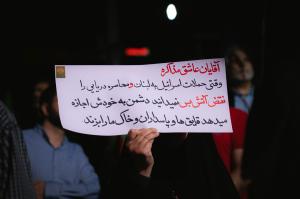 آقایان عاشق مذاکره
وقتی حملات اسرائیل به لبنان و محاصره دریایی را
نقض آتش بس نمیدانید دشمن به خودش اجازه
میدهد قایق ها و پاسداران و خاک ما را بزند